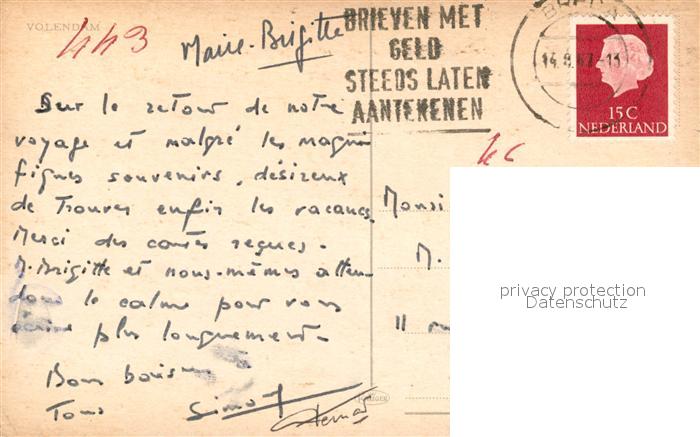 VOLENDAM
443
Marie-Brigitte
BRIEVEN MET
GELD
STEEDS LATEN
AANTEKENEN
14.8.67.-13
15 C
NEDERLAND
Sur le retour de notre
voyage et malgré les magni-
fiques souvenirs, désireux
de trouver enfin les vacances.
Merci des cartes reçues.
M.Brigitte et nous-mêmes atten-
dons le calme pour vous
écrire plus longuement.
Bons baisers
Tous
Simo
Monsi
M.
11 ru
privacy protection
Datenschutz